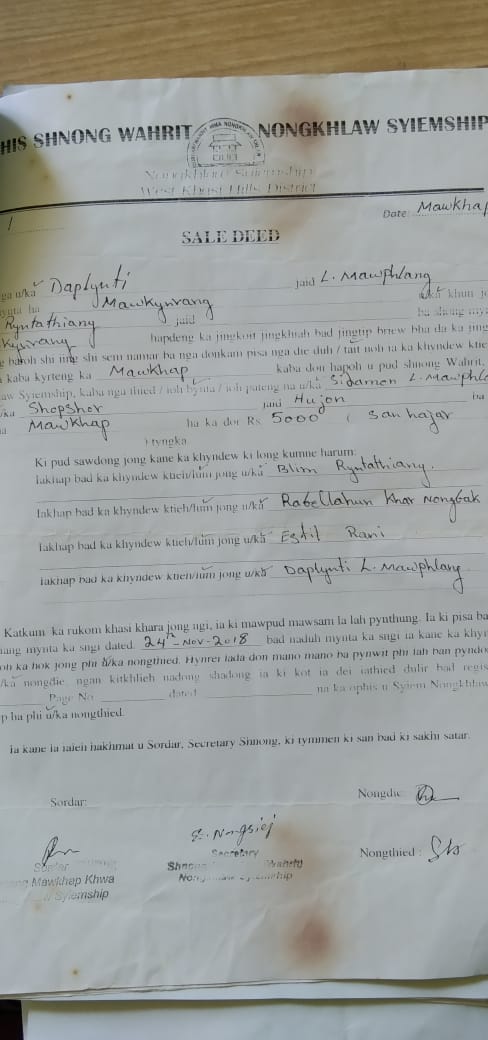 HIS SHNONG WAHRIT NONGKHLAW SYIEMSHIP
Nongkhlaw Syiemship
West Khasi Hills District
Date Mawkhap
SALE DEED
nga u/ka Daplynti jaid L. Mawphlang
mynta ha Mawkyrrang u/ka khun jo
Ryntathiang jaid ba shang my
Kyrrang hapdeng ka jingkoit jingkhiah bad jingtip briew bha da ka jing
baroh shi iing shi sem namar ba nga donkam pisa nga die duh / tait noh ia ka khyndew ktie
ka kaba kyrteng ka Mawkhap kaba don hapoh u pud shnong Wahrit,
aw Syiemship, kaba nga thied / ioh bynta / ioh pateng na u/ka Sidamon L. Mawphla
/ka Shopshor jaid Hujon ba
Mawkhap ha ka dor Rs 5000 ( san hajar
) tyngka
Ki pud sawdong jong kane ka khyndew ki long kumne harum:
Iakhap bad ka khyndew ktieh/lum jong u/ka Blim Ryntathiang.
Iakhap bad ka khyndew ktieh/lum jong u/ka Rabellahun Khar Nongbak
Iakhap bad ka khyndew ktieh/lum jong u/ka Estil Rani
Iakhap bad ka khyndew ktieh/lum jong u/ka Daplynti L. Mawphlang
Katkum ka rukom khasi khara jong ngi, ia ki mawpud mawsam la lah pynthung. Ia ki pisa ba
nang mynta ka sngi dated. 24th-Nov-2018 bad naduh mynta ka sngi ia kane ka khyn
oh ka hok jong phi u/ka nongthied. Hynrei lada don mano mano ba pynwit phi lah ban pyndo
/ka nongdie, ngan kitkhlieh nadong shadong ia ki kot ia dei iathied dulir bad regis
Page No dated na ka ophis u Syiem Nongkhlaw
p ha phi u/ka nongthied.
Ia kane la iateh hakhmat u Sordar, Secretary Shnong, ki tymmen ki san bad ki sakhi satar.
Sordar: Nongdie
E. Nongsiej
Sordar Secretary Nongthied :
Mawkhap Khwa Shnong Wahrit
Syiemship